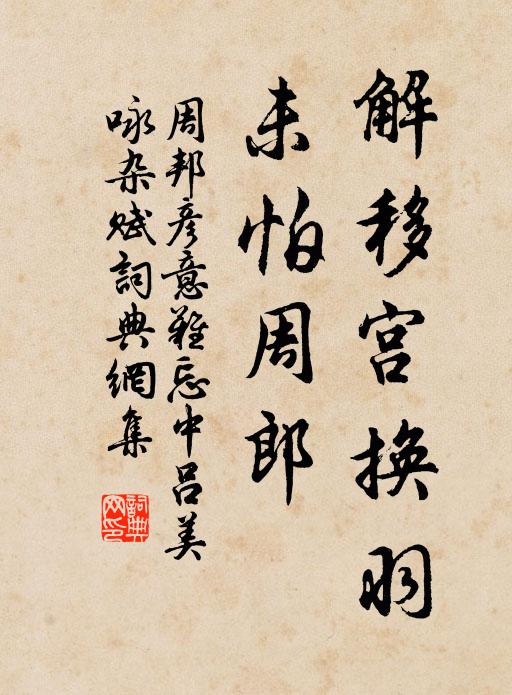 解移宫换羽
未怕周郎
周邦彦意難忘中吕美
咏杂赋詞典網集
詞典网印